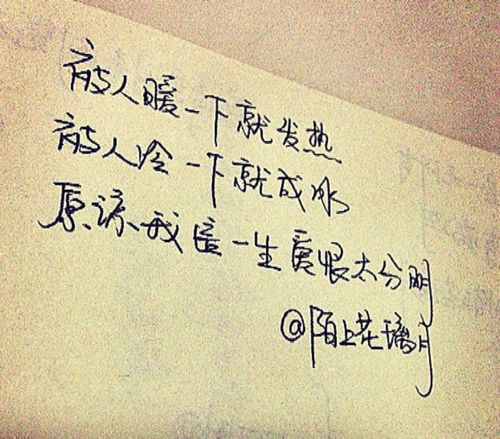 被人暖一下就发热
被人冷一下就成冰
原谅我这一生爱恨太分明
@陌上花璃月